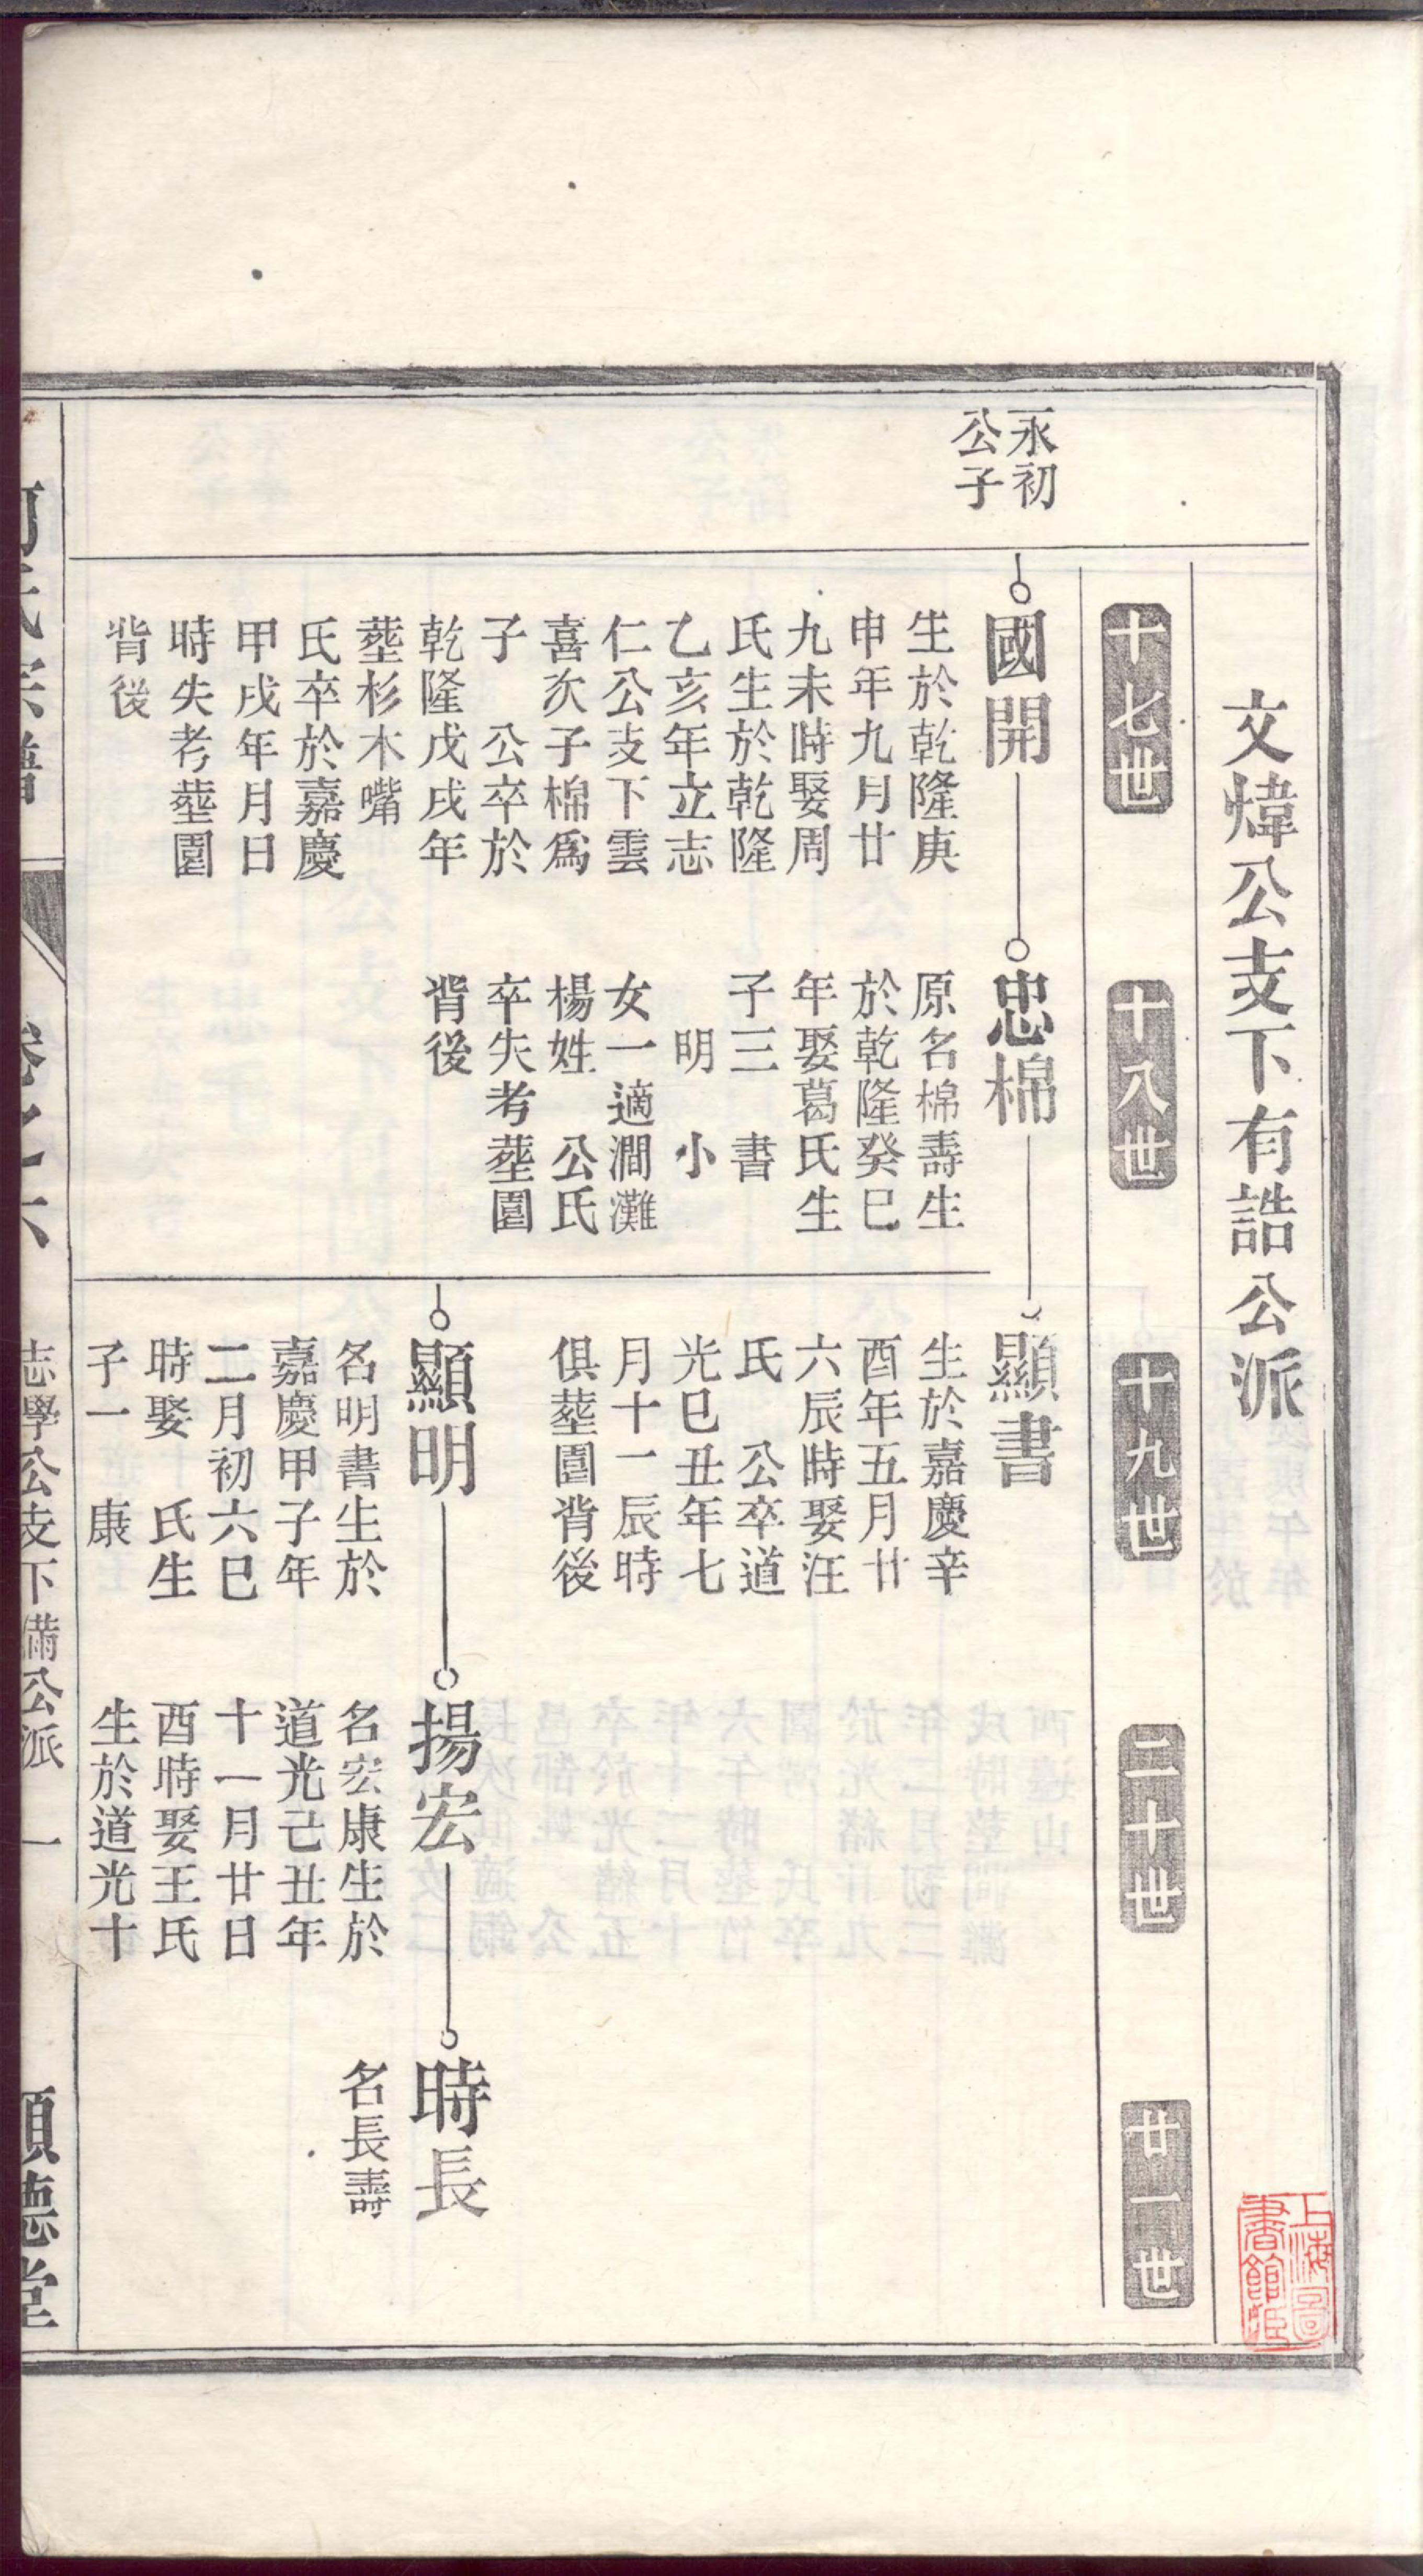 文煒公支下有誥公派
十七世
十八世
十九世
二十世
廿一世
永初
公子
國開
生於乾隆庚
申年九月廿
九未時娶周
氏生於乾隆
乙亥年立志
仁公支下雲
喜次子棉爲
子　公卒於
乾隆戊戌年
塟杉木嘴
氏卒於嘉慶
甲戌年月日
時失考塟園
背後
忠棉
原名棉壽生
於乾隆癸巳
年娶葛氏生
子三　書
明　小
女一適澗灘
楊姓　公氏
卒失考塟園
背後
顯書
生於嘉慶辛
酉年五月廿
六辰時娶汪
氏　公卒道
光巳丑年七
月十一辰時
俱塟園背後
顯明
名明書生於
嘉慶甲子年
二月初六巳
時娶　氏生
子一　康
揚宏
名宏康生於
道光己丑年
十一月廿日
酉時娶王氏
生於道光十
時長
名長壽
氏宗譜
卷之六
志學公支下備公派　一
順德堂
上海圖
書館